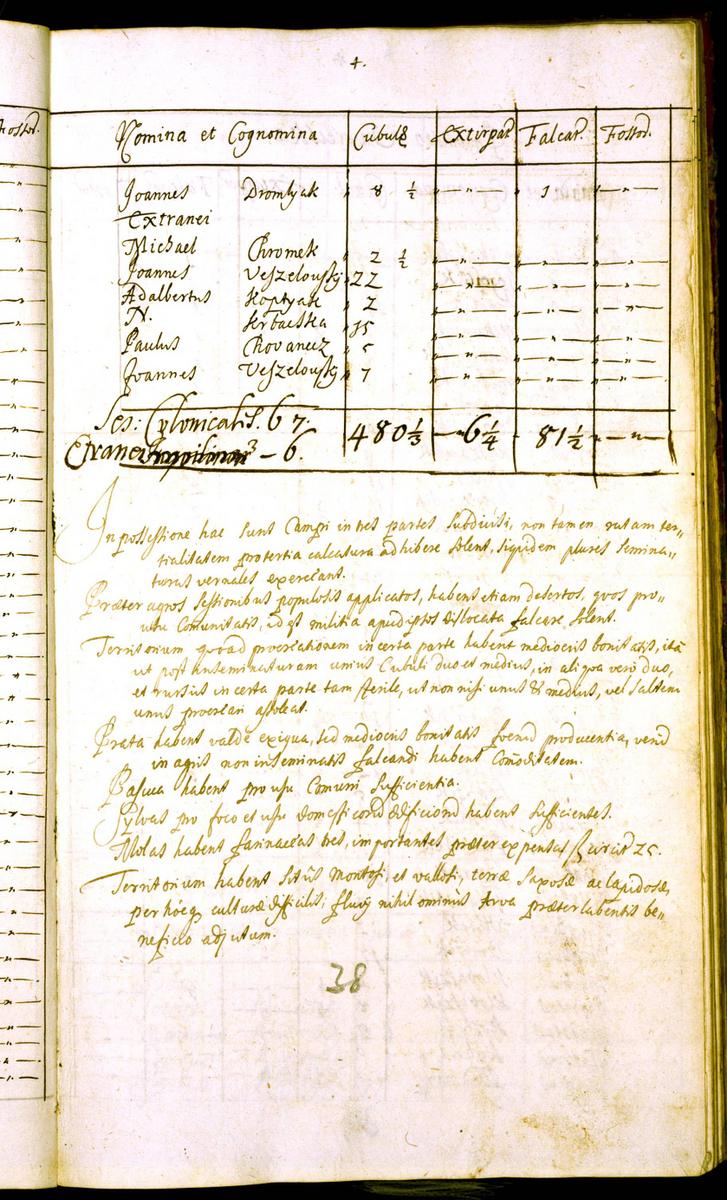 4.
Nomina et Cognomina Cubulę Extirpat. Falcat. Fossor.
Joannes Dromlyak " 8 ½ — " — 1 — " —
Extranei
Michael Chromek " 2 ½ — " — — " — — " —
Joannes Veszelouszky " 22 — " — — " — — " —
Adalbertus Koptyak " 2 — " — — " — — " —
N. Krbacska " 15 — " — — " — — " —
Paulus Chovanecz " 5 — " — — " — — " —
Joannes Veszelouszky " 7 — " — — " — — " —
Ses: Colonicalis. 67. 480 ⅓ — 6 ¼ — 81 ½ — " —
Extranei — 6.
In possessione hac sunt Campi in tres partes subdivisi, non tamen ter-
tialitatem pro tertia calcatura adhibere solent, siquidem plures semina-
turas vernales exerceant.
Præter agros sessionibus populosis applicatos, habent etiam desertos, quos pro
usu Comunitatis, id est militia dislocata falcare solent.
Territorium quoad procreationem in certa parte habent mediocris bonitatis, ita
ut post inseminaturam unius Cubuli duo et medius, in aliqva verò duo,
et rursus in certa parte tam sterile, ut non nisi unus & medius, vel saltem
unus procreari assoleat.
Prata habent valdè exigua, sed mediocris bonitatis foenũ producentia, verũ
in agris non inseminatis falcandi habent Comoditatem.
Pascua habent pro usu Comuni sufficientia.
Sylvas pro foco et usu domestico habent sufficientes.
Molas habent farinaceas tres, importantes præter expensas 25.
Territorium habent situs montosi et vallosi, terræ saxosæ ac lapidosæ,
culturæ difficilis, fluvij nihilominus Arva præterlabentis be-
neficio adjutum.
38